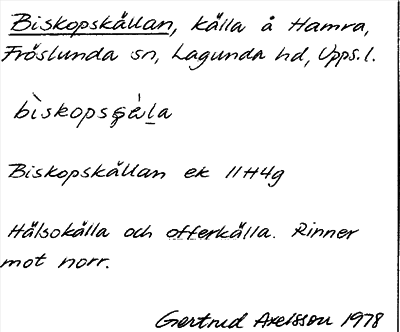 Biskopskällan, källa å Hamra,
Fröslunda sn, Lagunda hd, Upps. l.
Biskopskällan ek 11H4g
Hälsokälla och offerkälla. Rinner
mot norr.
Gertrud Axelsson 1978